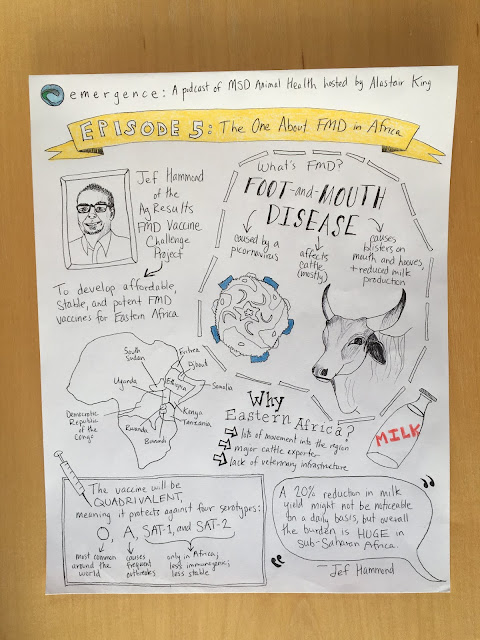 emergence: A podcast of MSD Animal Health hosted by Alastair King
EPISODE 5: The One About FMD in Africa
Jef Hammond
of the
AgResults
FMD Vaccine
Challenge
Project
To develop affordable,
stable, and potent FMD
vaccines for Eastern Africa
What's FMD?
FOOT-and-MOUTH
DISEASE
caused by a
picornavirus
affects
cattle
(mostly)
causes
blisters on
mouth and hooves,
+ reduced milk
production
South
Sudan
Eritrea
Djibouti
Uganda
Ethiopia
Somalia
Democratic
Republic
of the
Congo
Kenya
Tanzania
Rwanda
Burundi
Why
Eastern Africa?
lots of movement into the region
major cattle exporter
lack of veterinary infrastructure
MILK
The vaccine will be
QUADRIVALENT,
meaning it protects against four serotypes:
O, A, SAT-1, and SAT-2
most common
around the
world
causes
frequent
outbreaks
only in Africa;
less immunogenic;
less stable
"A 20% reduction in milk
yield might not be noticeable
on a daily basis, but overall
the burden is HUGE in
Sub-Saharan Africa."
—Jef Hammond